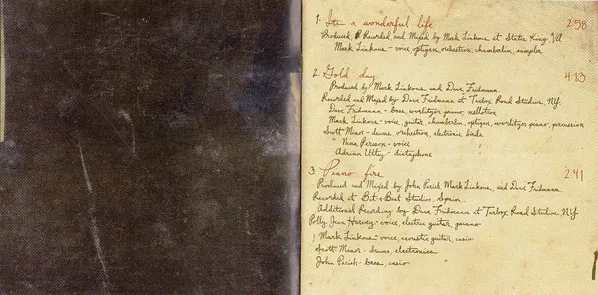 1. It's a wonderful life 2:58
Produced, Recorded and Mixed by Mark Linkous at Static King, VA
Mark Linkous - voice, optigan, orchestron, chamberlin, sampler
2. Gold day 4:13
Produced by Mark Linkous and Dave Fridmann
Recorded and Mixed by Dave Fridmann at Tarbox Road Studios, NY.
Dave Fridmann - bass, wurlitzer piano, mellotron
Mark Linkous - voice, guitar, chamberlin, optigan, wurlitzer piano, percussion
Scott Minor - drums, orchestron, electronic birds
Nina Persson - voice
Adrian Utley - dictaphone
3. Piano fire 2:41
Produced and Mixed by John Parish, Mark Linkous, and Dave Fridmann.
Recorded at Bit & Beat Studios, Spain.
Additional Recording by Dave Fridmann at Tarbox Road Studios, NY
Polly Jean Harvey - voice, electric guitar, piano
Mark Linkous - voice, acoustic guitar, casio
Scott Minor - drums, electronics
John Parish - bass, casio